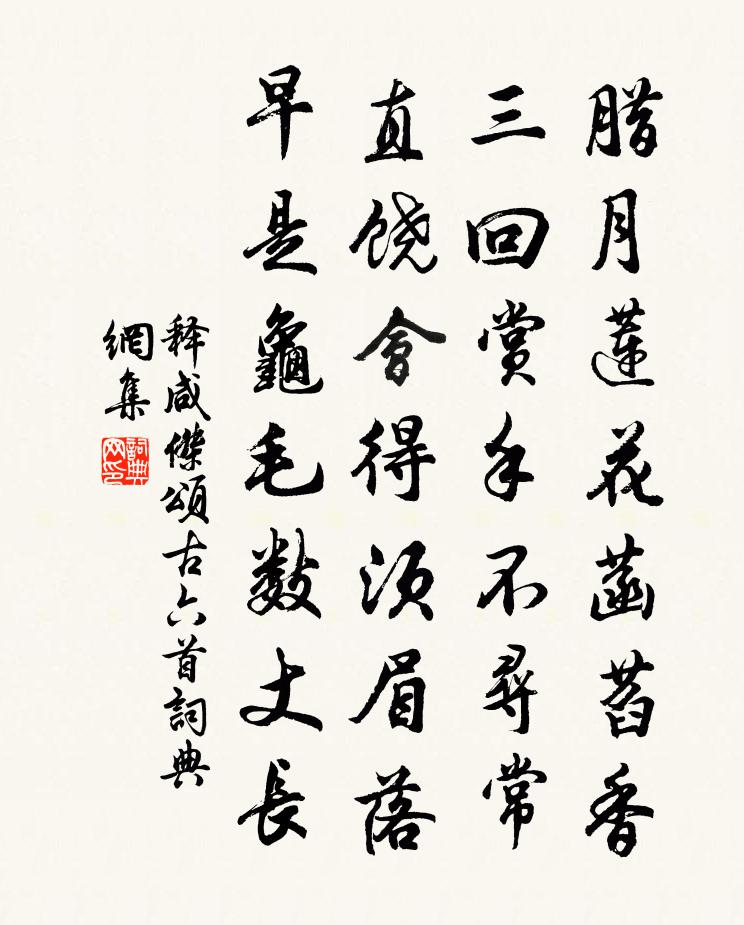 腊月蓮花菡萏香
三回賞手不尋常
直饶會得須眉落
早是龜毛数丈長
释咸傑頌古六首詞典
網集
詞典网印